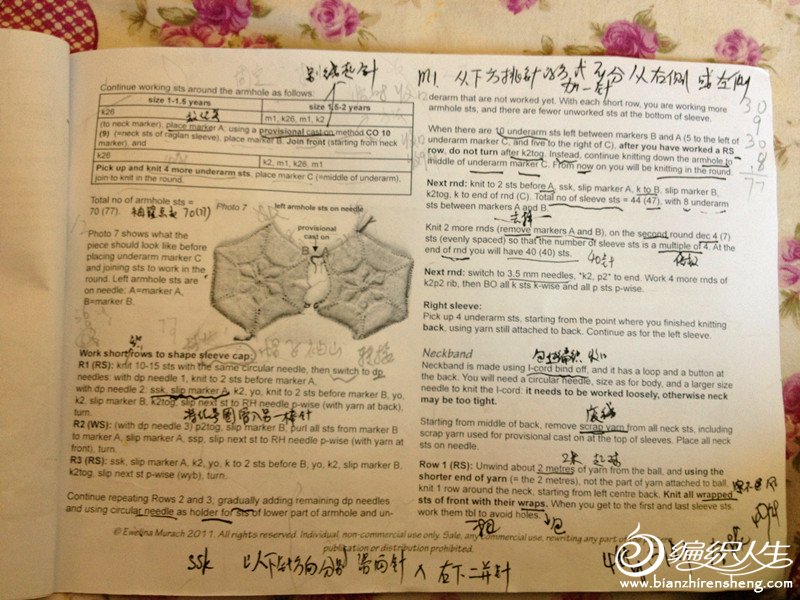 别线起针
m1 从下方挑针的形式 不分从右侧 或左侧
加一针
Continue working sts around the armhole as follows:
size 1-1.5 years
size 1.5-2 years
k26
m1, k26, m1, k2
(to neck marker), place marker A, using a provisional cast on method CO 10
(9) (=next sts of raglan sleeve), place marker B. Join front (starting from neck
marker), and
k26
k2, m1, k26, m1
Pick up and knit 4 more underarm sts, place marker C (=middle of underarm),
join to knit in the round.
Total no of armhole sts =
70 (77).
Photo 7
left armhole sts on needle
provisional
cast on
B
A
Photo 7 shows what the
piece should look like before
placing underarm marker C
and joining sts to work in the
round. Left armhole sts are
on needle: A=marker A,
B=marker B.
Work short rows to shape sleeve cap:
R1 (RS): knit 10-15 sts with the same circular needle, then switch to dp
needles: with dp needle 1, knit to 2 sts before marker A,
with dp needle 2: ssk, slip marker A, k2, yo, knit to 2 sts before marker B, yo,
k2, slip marker B, k2tog, slip next st to RH needle p-wise (with yarn at back),
turn.
R2 (WS): (with dp needle 3) p2tog, slip marker B, purl all sts from marker B
to marker A, slip marker A, ssp, slip next st to RH needle p-wise (with yarn at
front), turn.
R3 (RS): ssk, slip marker A, k2, yo, k to 2 sts before B, yo, k2, slip marker B,
k2tog, slip next st p-wise (wyb), turn.
Continue repeating Rows 2 and 3, gradually adding remaining dp needles
and using circular needle as holder for sts of lower part of armhole and un-
derarm that are not worked yet. With each short row, you are working more
armhole sts, and there are fewer unworked sts at the bottom of sleeve.
30
9
30
8
77
When there are 10 underarm sts left between markers B and A (5 to the left of
underarm marker C, and five to the right of C), after you have worked a RS
row, do not turn after k2tog. Instead, continue knitting down the armhole to
middle of underarm marker C. From now on you will be knitting in the round.
Next rnd: knit to 2 sts before A, ssk, slip marker A, k to B, slip marker B,
k2tog, k to end of rnd (C). Total no of sleeve sts = 44 (47), with 8 underarm
sts between markers A and B
Knit 2 more rnds (remove markers A and B), on the second round dec 4 (7)
sts (evenly spaced) so that the number of sleeve sts is a multiple of 4. At the
end of rnd you will have 40 (40) sts.
40针
倍数
Next rnd: switch to 3.5 mm needles, *k2, p2* to end. Work 4 more rnds of
k2p2 rib, then BO all k sts k-wise and all p sts p-wise.
Right sleeve:
Pick up 4 underarm sts, starting from the point where you finished knitting
back, using yarn still attached to back. Continue as for the left sleeve.
Neckband
Neckband is made using I-cord bind off, and it has a loop and a button at
the back. You will need a circular needle, size as for body, and a larger size
needle to knit the I-cord: it needs to be worked loosely, otherwise neck
may be too tight.
废线
Starting from middle of back, remove scrap yarn from all neck sts, including
scrap yarn used for provisional cast on at the top of sleeves. Place all neck
sts on needle.
2米
Row 1 (RS): Unwind about 2 metres of yarn from the ball, and using the
shorter end of yarn (= the 2 metres), not the part of yarn attached to ball,
knit 1 row around the neck, starting from left centre back. Knit all wrapped
sts of front with their wraps. When you get to the first and last sleeve sts,
work them tbl to avoid holes.
© Ewelina Murach 2011. All rights reserved. Individual, non-commercial use only. Sale, any commercial use, rewriting any part of
publication or distribution prohibited.
ssk 以下针方向分别 滑两针 入 左下二并针
编织人生
www.bianzhirensheng.com